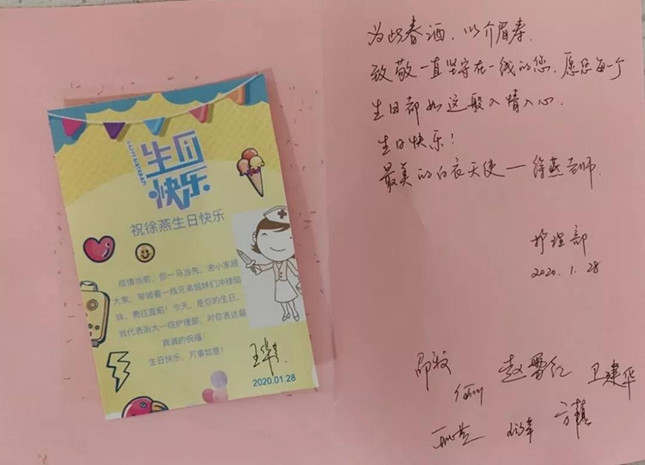 生日
快乐
祝徐燕生日快乐
疫情当前，你一马当先，舍小家顾
大家，带领着一线兄弟姐妹们冲锋陷
阵，勇往直前！今天，是你的生日，
我代表浙大一院护理部，对你表达最
真诚的祝福！
生日快乐，万事如意！
2020.01.28
为此春酒，以介眉寿.
致敬一直坚守在一线的您，愿您每一个
生日都如这般入情入心.
生日快乐！
最美的白衣天使——徐燕老师.
护理部
2020.1.28
赵雪红
卫建华